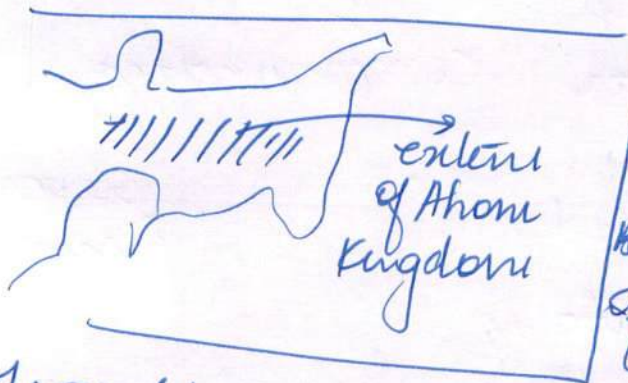 extent
of Ahom
Kingdom